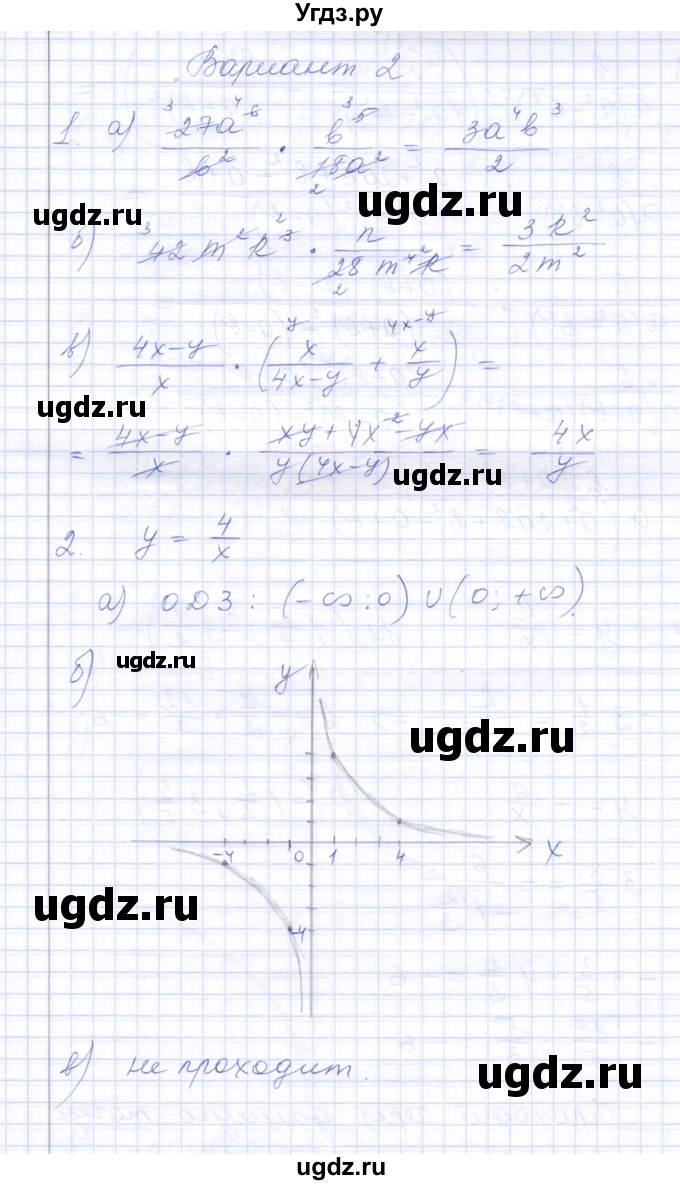 Угдз.ру
Вариант 2
1. а) 27a⁶/b² · b⁵/18a² = 3a⁴b³/2
ugdz.ru
б) 42m²k³ · n/28m⁴k = 3k²/2m²
ugdz.ru
в) (4x-y)/x · (x/(4x-y) + x/y) =
ugdz.ru
= (4x-y)/x · (xy+4x²-yx)/(y(4x-y)) = 4x/y
ugdz.ru
2. y = 4/x
а) ОДЗ: (-∞; 0) ∪ (0; +∞).
б) ugdz.ru
y
ugdz.ru
-4 0 1 4 x
ugdz.ru
-4
в) не проходит.
ugdz.ru
ugdz.ru